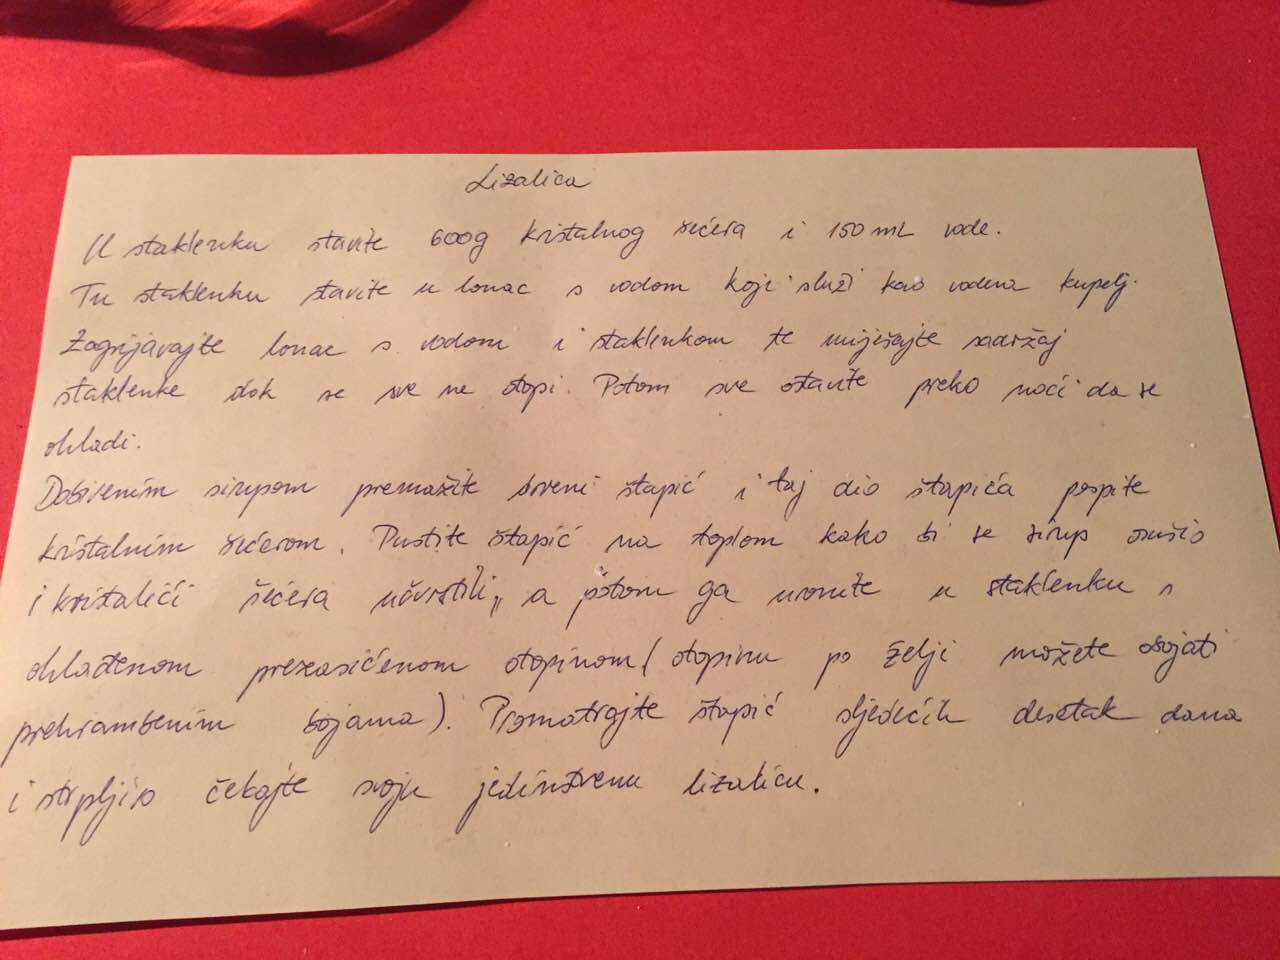 Lizalica
U staklenku stavite 600g kristalnog šećera i 150 mL vode.
Tu staklenku stavite u lonac s vodom koji služi kao vodena kupelj.
Zagrijavajte lonac s vodom i staklenkom te miješajte sadržaj
staklenke dok se sve ne otopi. Potom sve ostavite preko noći da se
ohladi.
Dobivenim sirupom premažite drveni štapić i taj dio štapića pospite
kristalnim šećerom. Pustite štapić na toplom kako bi se sirup osušio
i kristalići šećera učvrstili, a potom ga uronite u staklenku s
ohlađenom prezasićenom otopinom (otopinu po želji možete obojati
prehrambenim bojama). Promatrajte štapić sljedećih desetak dana
i strpljivo čekajte svoju jedinstvenu lizalicu.